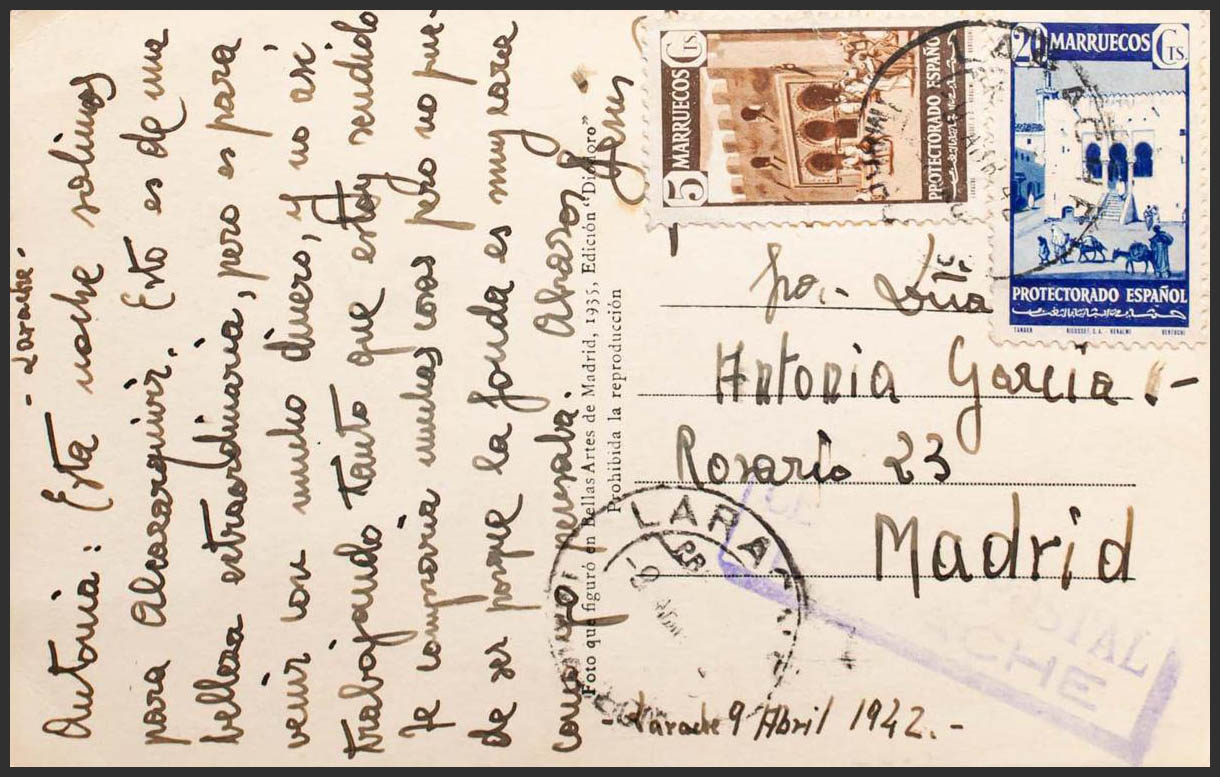 - Larache -
Antonia: Esta noche salimos
para Alcazarquivir. Esto es de una
belleza extraordinaria, pero es para
venir con mucho dinero, y no asi
trabajando tanto que estoy rendido
Te compraria muchas cosas pero no pue-
de ser porque la fonda es muy cara
como yo pensaba. Abrazos
Jesus
Foto que figuró en Bellas Artes de Madrid, 1935, Edición "Diodoro"
Prohibida la reproducción
5 Cts
MARRUECOS
PROTECTORADO ESPAÑOL
20 MARRUECOS Cts.
PROTECTORADO ESPAÑOL
Doña
Antonia Garcia.-
Rosario 23
Madrid
LARACHE
POSTAL
LARACHE
- Larache 9 Abril 1942.-